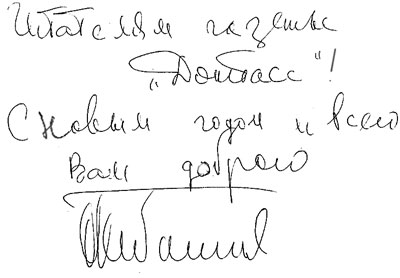 Читателям газеты
„Донбасс"!
С Новым годом и всего
Вам доброго